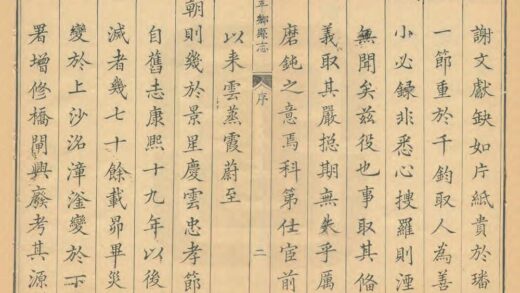 謝文獻缺如片紙貴於璠
一節重於千鈞取人為善
小必錄非悉心搜羅則湮
無聞矣茲役也事取其俻
義取其嚴揔期無失乎厲
磨鈍之意焉科第仕宦前
平鄉縣志 序 二
以来雲蒸霞蔚至
朝則幾於景星慶雲忠孝節
自舊志康熙十九年以後
滅者幾七十餘載昴畢災
變於上沙洺漳滏變於下
署增修橋閘興廢考其源